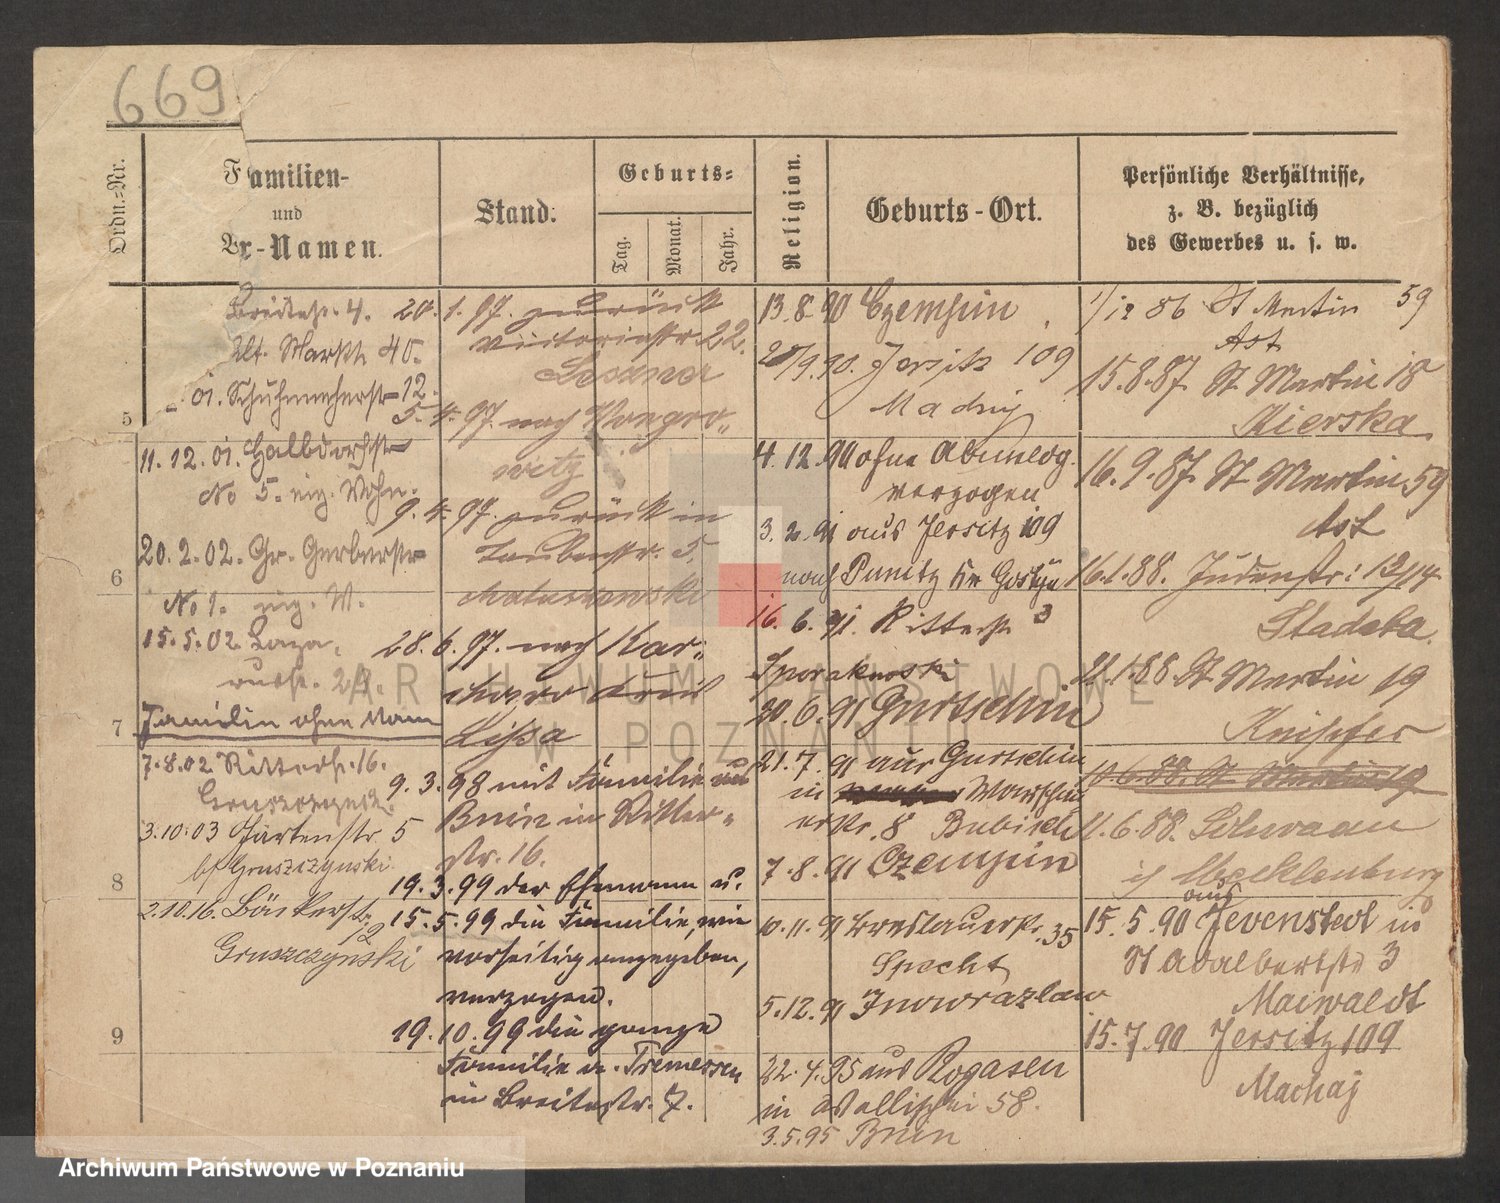 669
Ordn.-Nr.
Familien-
und
Vor-Namen.
Stand.
Geburts-
Tag.
Monat.
Jahr.
Religion.
Geburts-Ort.
Persönliche Verhältnisse,
z. B. bezüglich
des Gewerbes u. s. w.
5
6
7
8
9
Breitestr. 4.
Alt. Markt 40.
01. Schuhmacherstr 12.
11.12.01. Halbdorfstr
No 5. eig. Wohn.
20.2.02. Gr. Gerberstr
No 1. eig. W.
15.5.02
Familie ohne Mann
7.8.02 Ritterstr. 16.
3.10.03 Gartenstr 5
bf Gruszczynski
2.10.16. Bäckerstr. 12
Gruszczynski
20.1.97. zurück
Victoriastr 22.
5.4.97. nach Wongro-
witz
9.4.97. zurück in
Taubenstr. 5.
28.6.97. nach
Lissa
9.3.98 mit Familie aus
Bnin in Ritter-
str. 16.
19.3.99 der Ehemann u.
15.5.99 die Familie, wie
vorseitig angegeben,
verzogen.
19.10.99 die ganze
Familie a. Tremessen
in Breitestr. 7.
13.8.90 Czempin
/9.90. Jersitz 109
4.12.90 ohne Abmeldg.
verzogen
3.2.91 aus Jersitz 109
nach Punitz Kr Gostyn
16.6.91. Ritterstr 3
30.6.91 Gurtschin
21.7.91 aus Gurtschin
in
8
7.8.91 Czempin
10.11.91 Breslauerstr. 35
Specht
5.12.91 Inowrazlaw
22.4.95 aus Rogasen
in Wallischei 58.
3.5.95 Bnin
1/12 86 St Martin 59
Ast
15.8.87. St Martin 18
Kierska
16.9.87. St Martin 59
Ast
16.1.88. Judenstr: 13/14
22.1.88 St Martin 19
Knipfer
10.6.88. St Martin 19
11.6.88. Schwaan
i/ Mecklenburg
15.5.90 aus Jevenstedt in
St Adalbertstr 3
Maiwaldt
15.7.90 Jersitz 109
Machaj
ARCHIWUM PAŃSTWOWE
W POZNANIU
Archiwum Państwowe w Poznaniu